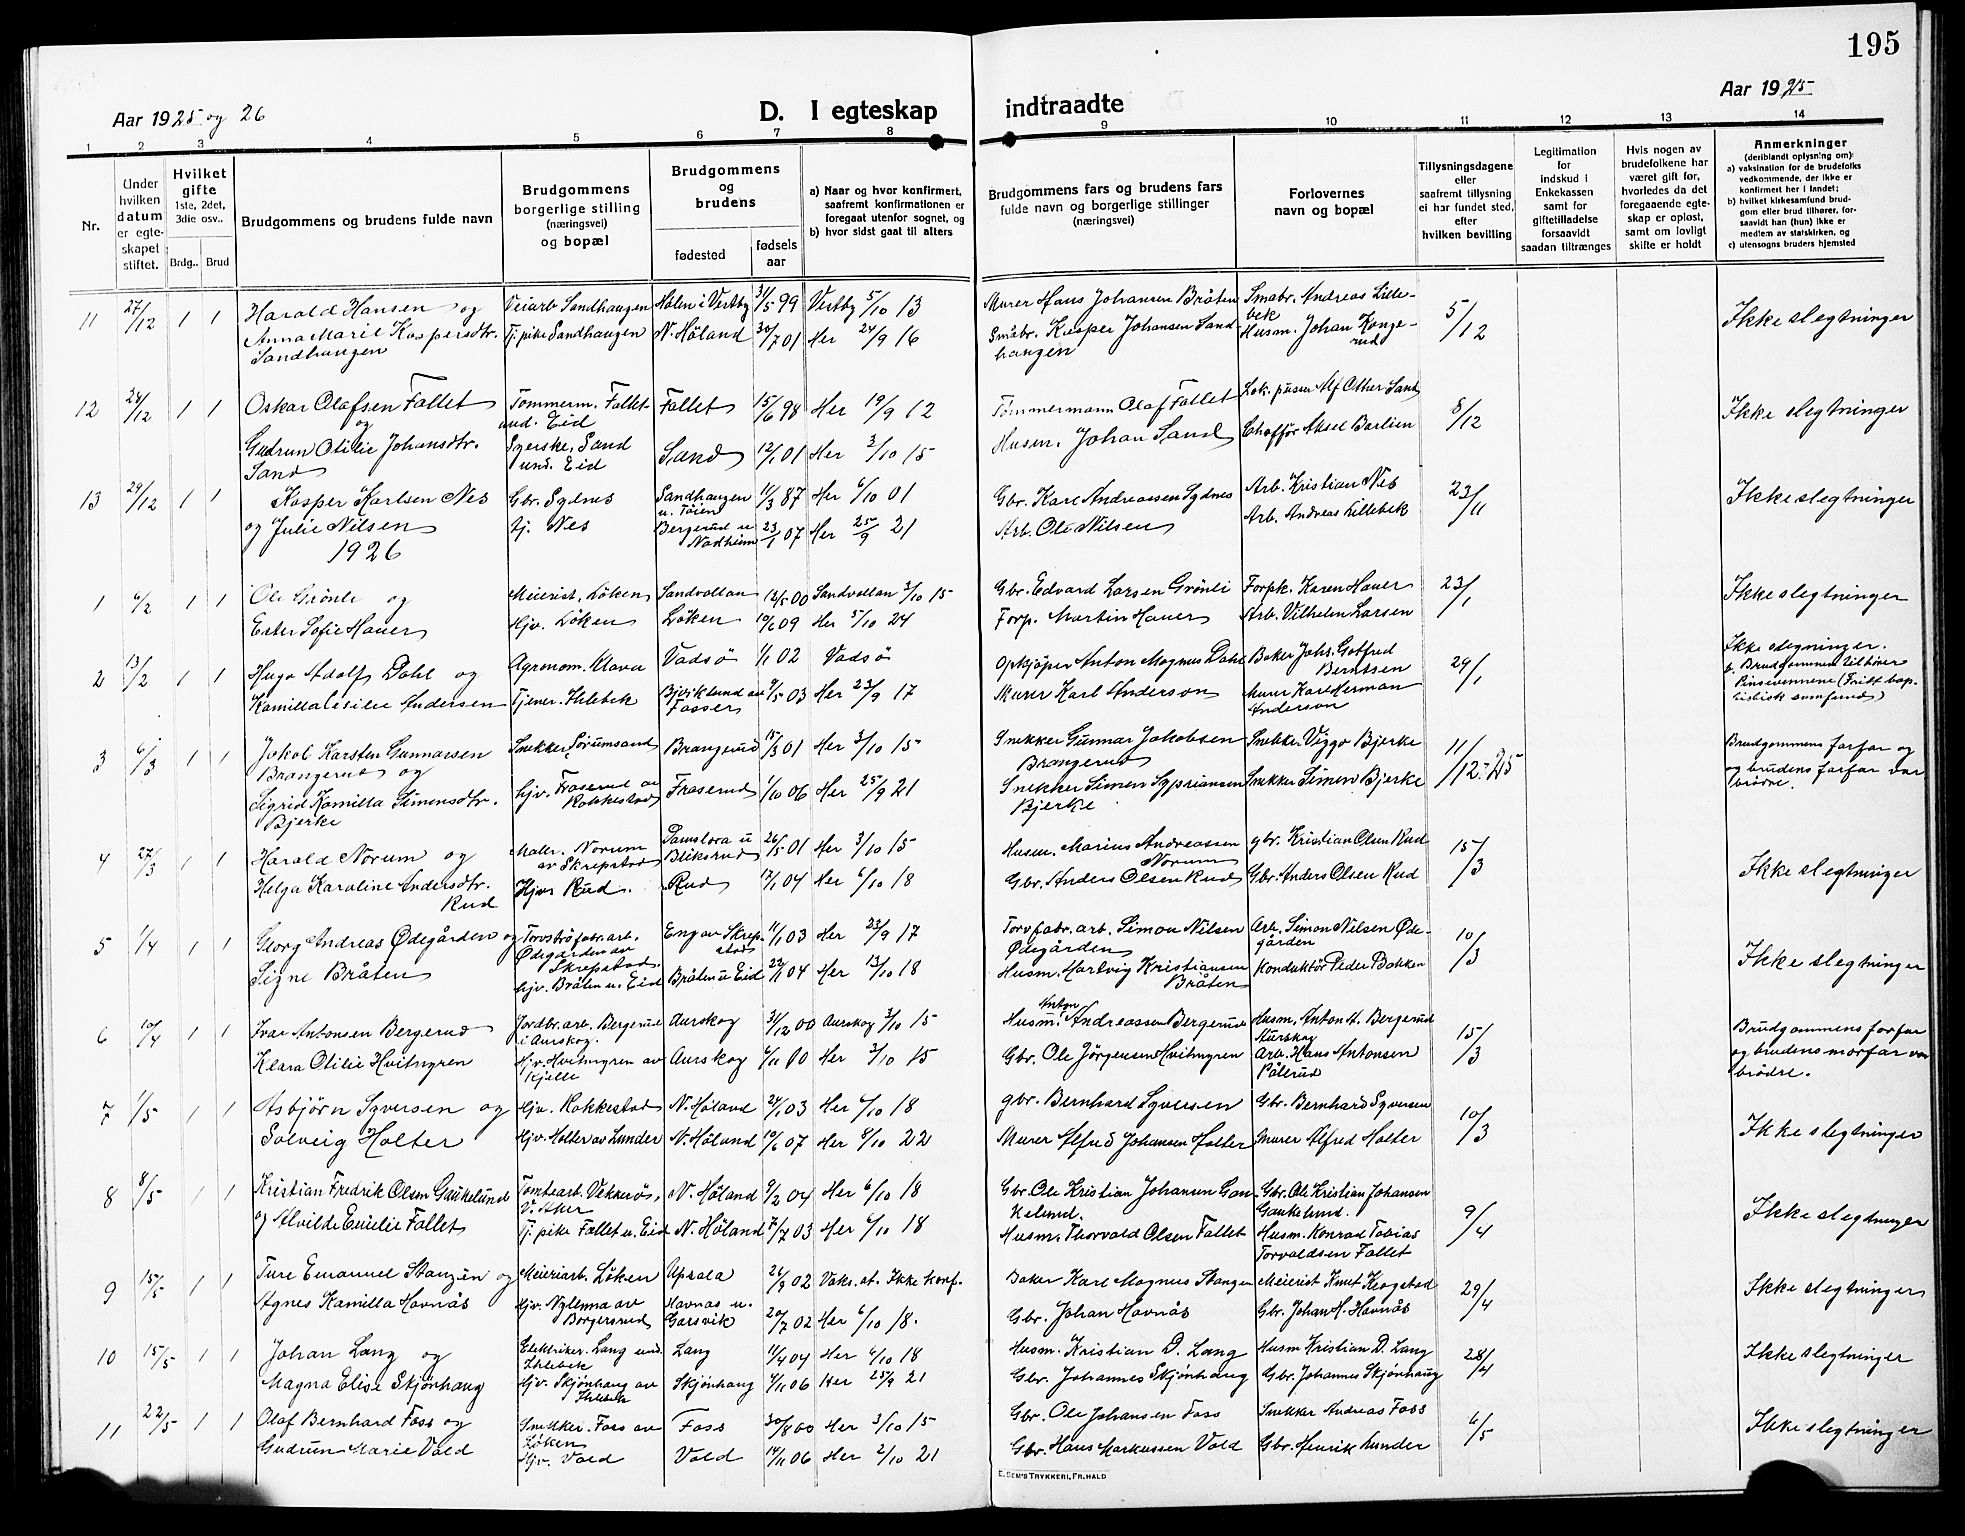 195
Aar 1925 og 26
D. I egteskap indtraadte
Aar 1925
1 2 3 4 5 6 7 8 9 10 11 12 13 14
Nr.
Under hvilken datum er egteskapet stiftet.
Hvilket gifte 1ste, 2det, 3die osv..
Brdg.. Brud
Brudgommens og brudens fulde navn
Brudgommens borgerlige stilling (næringsvei) og bopæl
Brudgommens og brudens
fødested
fødselsaar
a) Naar og hvor konfirmert, saafremt konfirmationen er foregaat utenfor sognet, og
b) hvor sidst gaat til alters
Brudgommens fars og brudens fars fulde navn og borgerlige stillinger (næringsvei)
Forlovernes navn og bopæl
Tillysningsdagene eller saafremt tillysning ei har fundet sted, efter hvilken bevilling
Legitimation for indskud i Enkekassen samt for giftetilladelse forsaavidt saadan tiltrænges
Hvis nogen av brudefolkene har været gift før, hvorledes da det foregaaende egteskap er opløst, samt om lovligt skifte er holdt
Anmerkninger (deriblandt oplysning om):
a) vaksination for de brudefolks vedkommende, der ikke er konfirmert her i landet;
b) hvilket kirkesamfund brudgom eller brud tilhører, forsaavidt han (hun) ikke er medlem av statskirken, og
c) utensogns bruders hjemsted
11 27/12 1 1 Harald Hansen og Veiarb Sandhaugen Holen i Vestby 31/5 99 Vestby 5/10 13 Murer Hans Johansen Bråten Smabr. Andreas Lillebek 5/12 Ikke slegtninger
Anna Marie Kaspersdtr. Sandhaugen Tj. pike Sandhaugen N. Höland 30/7 01 Her 24/9 16 Småbr. Kasper Johansen Sandhaugen Husm. Johan Kongerud
12 28/12 1 1 Oskar Olafsen Fallet og Tömmerm. Fallet und. Eid Fallet 15/6 98 Her 19/9 12 Tömmermann Olaf Fallet Lok. pusser Alf Other Sand 8/12 Ikke slegtninger
Gudrun Otilie Johansdtr. Sand Syerske, Sand und. Eid Sand 12/1 01 Her 3/10 15 Husm. Johan Sand Chafför Aksel Barlien
13 29/12 1 1 Kasper Karlsen Nes Gbr. Sydnes Sandhaugen u. Töien 11/3 87 Her 6/10 01 Gbr. Karl Andreassen Sydnes Arb. Kristian Nes 23/11 Ikke slegtninger
og Julie Nilsen tj. Nes Bergerud u Nadheim 23/1 07 Her 25/9 21 Arb. Ole Nilsen Arb. Andreas Lillebek
1926
1 6/2 1 1 Ole Grönli og Meierist, Löken Sandvollan 12/5 00 Sandvollan 3/10 15 Gbr. Edvard Larsen Grönli Forpk. Karen Hauer 23/1 Ikke slegtninger
Ester Sofie Hauer Hjv. Löken Löken 10/6 09 Her 5/10 24 Forp. Martin Hauer Arb. Vilhelm Larsen
2 13/2 1 1 Hugo Adolf Dahl og Agronom. Klava Vadsö 1/1 02 Vadsö Opkjöper Anton Magnus Dahl Baker Johs. Gotfred Berntsen 29/1 Ikke slegninger. b. Brudgommen tilhörer Pinsevennene (Fritt baptistisk samfund)
Kamilla Cesilie Andersen Tjener. Ihlebek Bjviklund av Fosser 9/5 03 Her 23/9 17 Murer Karl Anderson Murer Karl Herman Anderson
3 6/3 1 1 Jakob Karsten Gunnarsen Brangerud og Snekker Sörumsand Brangerud 15/3 01 Her 3/10 15 Snekker Gunnar Jakobsen Brangerud Snekker Viggo Bjerke 11/12-25 Brudgommens farfar og og brudens farfar var brödre.
Sigrid Kamilla Simensdtr. Bjerke hjv. Fraserud av Kokkestad Fraserud 1/10 06 Her 25/9 21 Snekker Simen Sypriansen Bjerke Snekker Simen Bjerke
4 27/3 1 1 Harald Norum og Maler. Norum av Skrepstad Damstora u Bliksrud 26/5 01 Her 3/10 15 Husm. Marius Andreassen Norum gbr. Kristian Olsen Rud 15/3 Ikke slegtninger
Helga Karoline Andersdtr. Rud Hjv Rud. Rud 12/1 04 Her 6/10 18 Gbr. Anders Olsen Rud Gbr. Anders Olsen Rud
5 1/4 1 1 Georg Andreas Ødegården og Torvströfabr. arb. Ødegården av Skrepstad. Eng av Skrepstad 11/1 03 Her 23/9 17 Torvfabr. arb. Simon Nilsen Ødegården Arb. Simon Nilsen Ødegården 10/3 Ikke slegtninger
Signe Bråten hjv. Bråten u. Eid Bråten u Eid 22/11 04 Her 13/10 18 Husm. Hartvig Kristiansen Bråten Konduktör Peder Bakken
6 10/4 1 1 Ivar Antonsen Bergerud Jordbr. arb. Bergerud i Aurskog. Aurskog 31/12 00 Aurskog 3/10 15 Husm. Anton Andreassen Bergerud Husm. Anton A. Bergerud Aurskog 15/3 Brudgommens farfar og brudens morfar var brödre.
Klara Otilie Hvitmyren Hjv. Hvitmyren av Kjelle Aurskog 6/11 00 Her 3/10 15 Gbr. Ole Jörgensen Hvitmyren Arb. Hans Antonsen Pålerud
7 1/5 1 1 Asbjörn Syversen og Hjv. Kokkestad N. Höland 24/1 03 Her 6/10 18 gbr. Bernhard Syversen Gbr. Bernhard Syversen 10/3 Ikke slegtninger
Solveig Holter Hjv. Holter av Lunder N. Höland 10/6 07 Her 8/10 22 Murer Alfred Johansen Holter Murer Alfred Holter
8 8/5 1 1 Kristian Fredrik Olsen Gaukelund Tomtearb. Vekkerö, V. Aker N. Höland 9/2 04 Her 6/10 18 Gbr. Ole Kristian Johansen Gaukelund. Gbr. Ole Kristian Johansen Gaukelund. 9/4 Ikke slegtninger
og Alvilde Emilie Fallet Tj. pike Fallet u. Eid N. Höland 7/7 03 Her 6/10 18 Husm. Thorvald Olsen Fallet Husm. Konrad Tobias Torvaldsen Fallet
9 15/5 1 1 Ture Emanuel Stanzén og Meieriarb. Löken Upsala 26/9 02 Vaks. at. Ikke konf. Baker Karl Magnus Stangen Meierist Knut Krogstad 29/4 Ikke slegtninger
Agnes Kamilla Hovnås Hjv. Nylenna av Borgersrud Havnås u. Garsvik 20/7 02 Her 6/10 18. Gbr. Johan Hovnås Gbr. Johan H. Havnås
10 15/5 1 1 Johan Lang og Elektriker. Lang und. Ihlebek Lang 11/4 04 Her 6/10 18 Husm. Kristian D. Lang Husm Kristian D. Lang 28/4 Ikke slegtninger
Magna Elise Skjönhaug Hjv. Skjönhaug av Ihlebek Skjönhaug 4/11 06 Her 25/9 21 Gbr. Johannes Skjönhaug Gbr. Johannes Skjönhaug
11 22/5 1 1 Olaf Bernhard Foss og Snekker. Foss av Löken Foss 30/8 00 Her 3/10 15 Gbr. Ole Johansen Foss Snekker Andreas Foss 6/5 Ikke slegtninger
Gudrun Marie Vold Hjv. Vold Vold 14/11 06 Her 2/10 21 Gbr. Hans Markussen Vold Gbr. Henrik Lunder
E. SEM'S TRYKKERI, FR.HALD